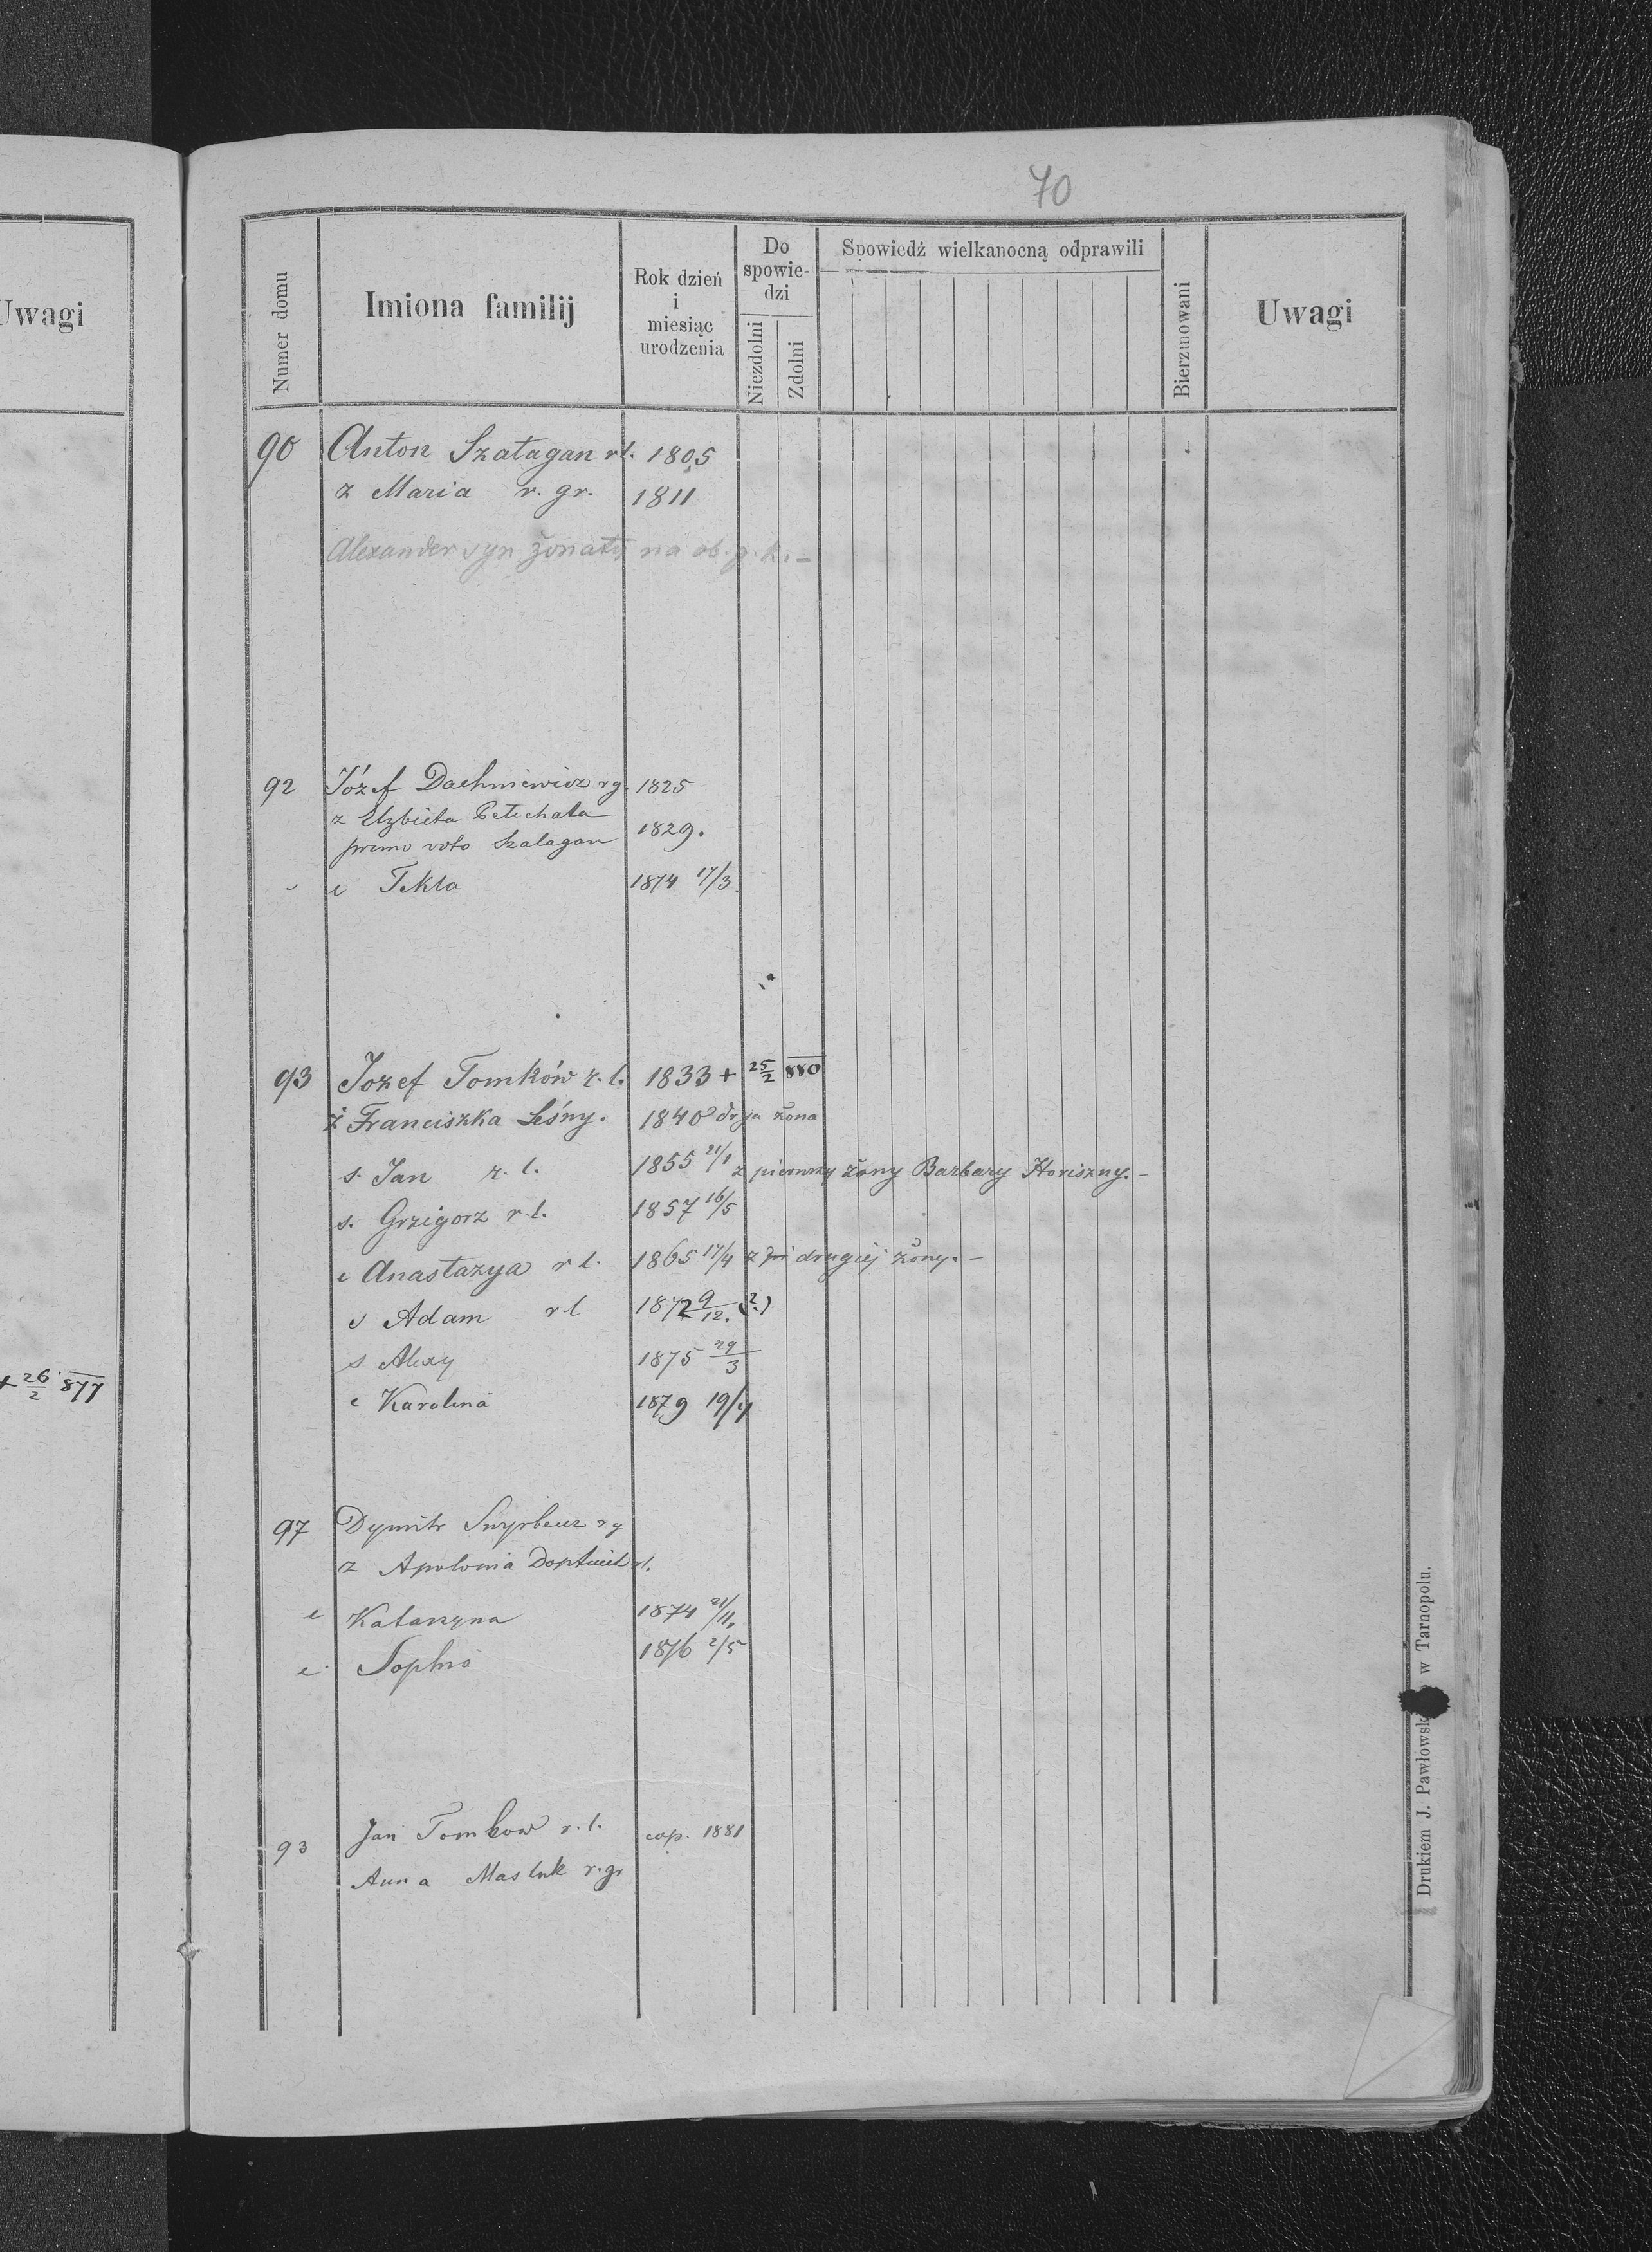 Uwagi
+ 26/2 877
70
Numer domu
Imiona familij
Rok dzień
i
miesiąc
urodzenia
Do
spowie-
dzi
Niezdolni
Zdolni
Spowiedź wielkanocną odprawili
Bierzmowani
Uwagi
90 Anton Szatagan rl. 1805
z Maria r. gr. 1811
Alexander syn żonaty na ob. g. k. –
92 Józef Dachniewicz rg. 1825
z Elzbieta
primo voto Szalagan 1829.
c Tekla 1874 17/3.
93 Jozef Tomków r. l. 1833 + 25/2 880
ż Franciszka Leśny. 1840 drga żona
s. Jan r. l. 1855 21/1 z pierwszy żony Barbary Horiszny. –
s. Grzigorz r. l. 1857 16/5
c Anastazya r l. 1865 17/4 z drugiéj żony. –
s Adam rl 1872 9/12. (?)
s Alexy 1875 29/3
c Karolina 1879 19/4
97 Dymitr rg
z Apolonia rl.
c Katarzyna 1874 21/11.
c. Sophia 1876 2/5
93 Jan Tomkow r. l. cop. 1881
Anna Masluk r. gr
Drukiem J. Pawłowsk w Tarnopolu.